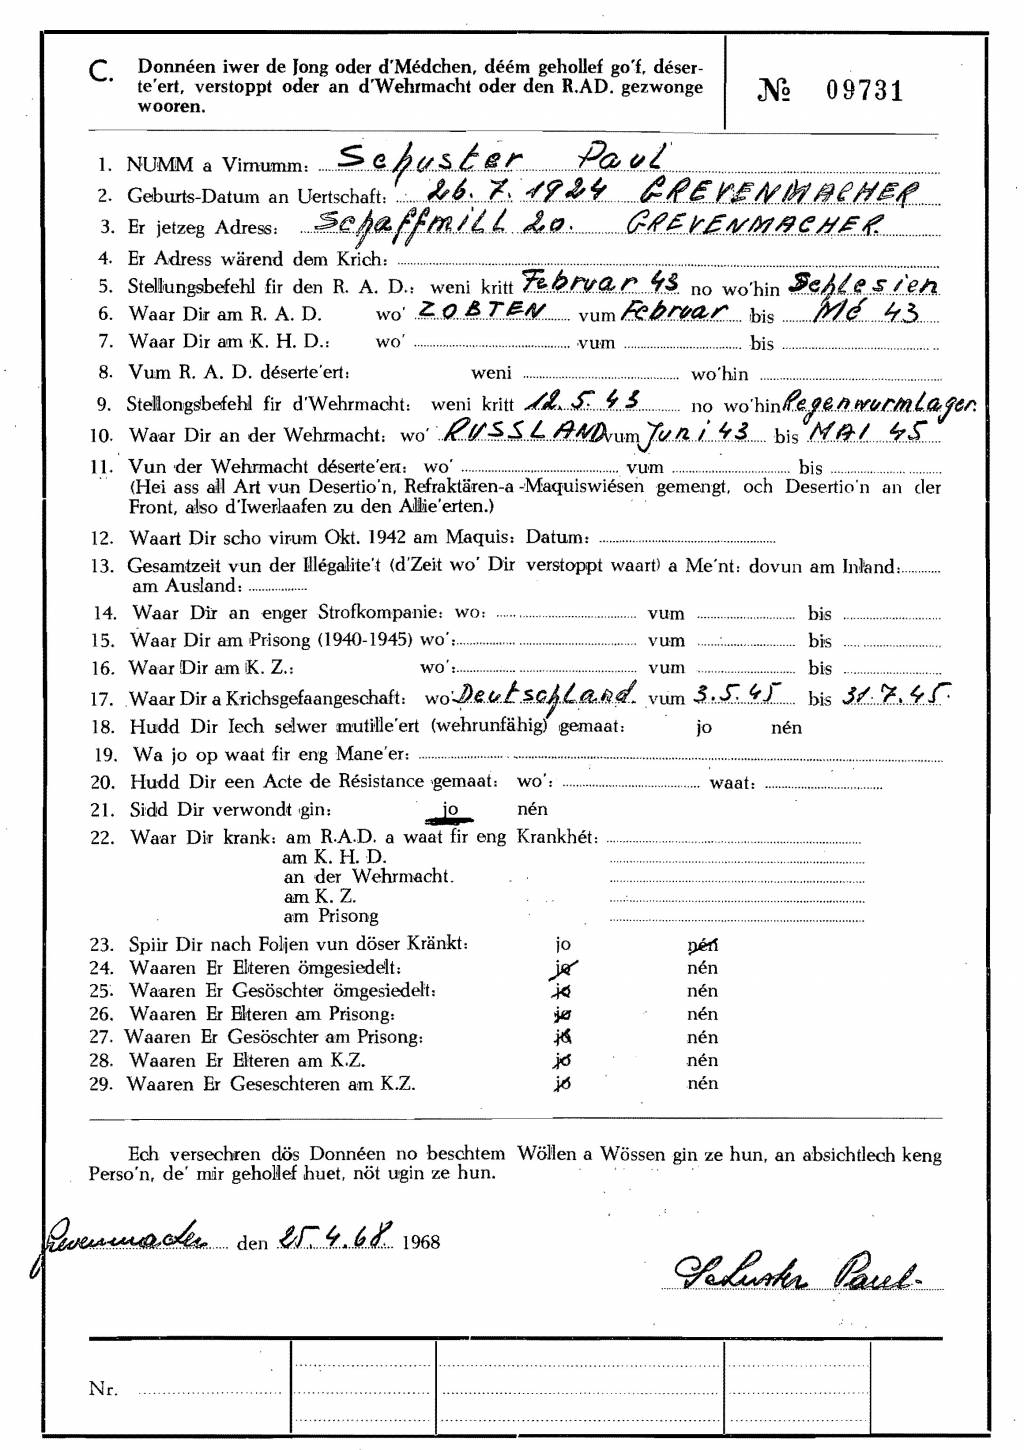 C. Donnéen iwer de Jong oder d'Médchen, déém gehollef go'f, déser-
te'ert, verstoppt oder an d'Wehrmacht oder den R.AD. gezwonge
wooren.
№ 09731
1. NUMM a Virnumm: Schuster Paul
2. Geburts-Datum an Uertschaft: 26. 7. 1924 GREVENMACHER
3. Er jetzeg Adress: Schaffmill 20. GREVENMACHER.
4. Er Adress wärend dem Krich:
5. Stellungsbefehl fir den R. A. D.: weni kritt Februar 43 no wo'hin Schlesien
6. Waar Dir am R. A. D. wo' ZOBTEN vum Februar bis Mé 43
7. Waar Dir am K. H. D.: wo' vum bis
8. Vum R. A. D. déserte'ert: weni wo'hin
9. Stellongsbefehl fir d'Wehrmacht: weni kritt 12. 5. 43 no wo'hin Regenwurmlager.
10. Waar Dir an der Wehrmacht: wo' RUSSLAND vum Juni 43 bis MAI 45
11. Vun der Wehrmacht déserte'ert: wo' vum bis
(Hei ass all Art vun Desertio'n, Refraktären-a -Maquiswiésen gemengt, och Desertio'n an der
Front, also d'Iwerlaafen zu den Allie'erten.)
12. Waart Dir scho virum Okt. 1942 am Maquis: Datum:
13. Gesamtzeit vun der Illégalite't (d'Zeit wo' Dir verstoppt waart) a Me'nt: dovun am Inland:
am Ausland:
14. Waar Dir an enger Strofkompanie: wo: vum bis
15. Waar Dir am Prisong (1940-1945) wo': vum bis
16. Waar Dir am K. Z.: wo': vum bis
17. Waar Dir a Krichsgefaangeschaft: wo: Deutschland. vum 3.5.45 bis 31.7.45.
18. Hudd Dir Iech selwer mutille'ert (wehrunfähig) gemaat: jo nén
19. Wa jo op waat fir eng Mane'er:
20. Hudd Dir een Acte de Résistance gemaat: wo': waat:
21. Sidd Dir verwondt gin: jo nén
22. Waar Dir krank: am R.A.D. a waat fir eng Krankhét:
am K. H. D.
an der Wehrmacht.
am K. Z.
am Prisong
23. Spiir Dir nach Foljen vun döser Kränkt: jo nén
24. Waaren Er Elteren ömgesiedelt: jo nén
25. Waaren Er Gesöschter ömgesiedelt: jo nén
26. Waaren Er Elteren am Prisong: jo nén
27. Waaren Er Gesöschter am Prisong: jo nén
28. Waaren Er Elteren am K.Z. jo nén
29. Waaren Er Geseschteren am K.Z. jo nén
Ech versechren dös Donnéen no beschtem Wöllen a Wössen gin ze hun, an absichtlech keng
Perso'n, de' mir gehollef huet, nöt ugin ze hun.
Grevenmacher den 25.4.68 1968
Schuster Paul
Nr.